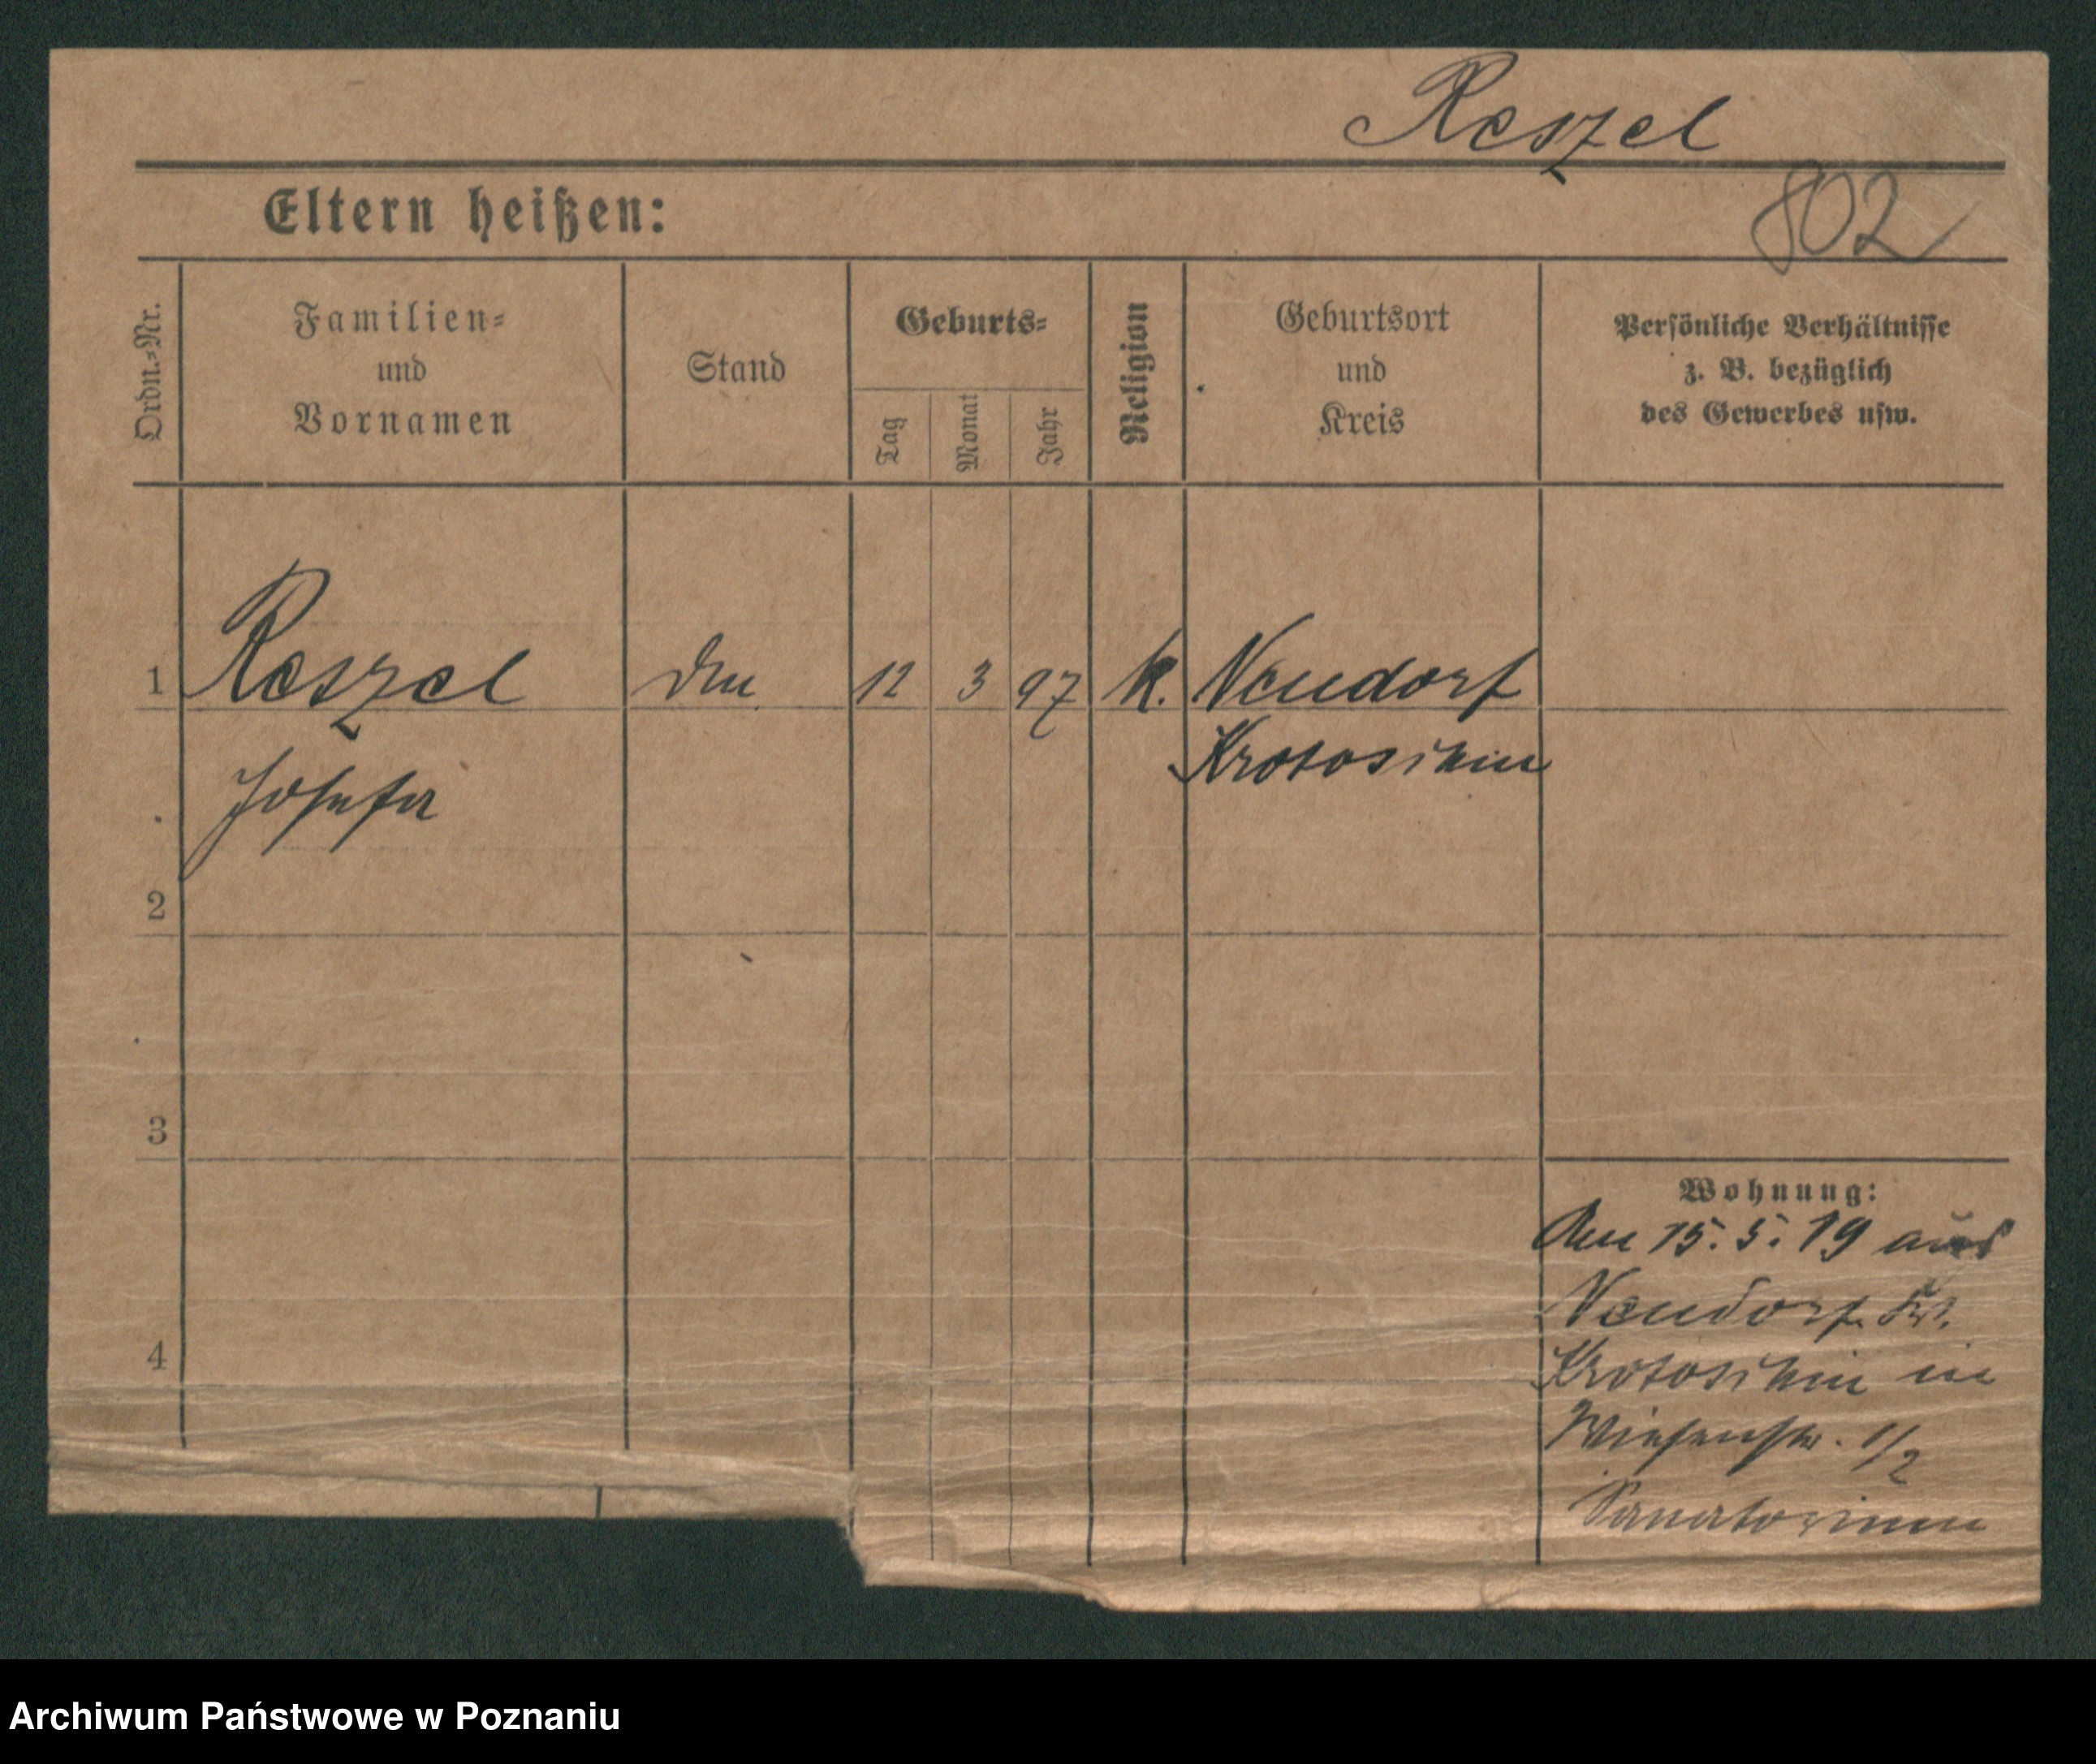 Reszel
802
Eltern heißen:
Ordn.-Nr.
Familien-
und
Vornamen
Stand
Geburts-
Tag
Monat
Jahr
Religion
Geburtsort
und
Kreis
Persönliche Verhältnisse
z. B. bezüglich
des Gewerbes usw.
1 Reszel 12 3 97 k. Neudorf
Krotoschin
Josefa
2
3
4
Wohnung:
Am 15.5.19 aus
Neudorf Krs.
Krotoschin in
Wiesenstr. 1/2
Sanatorium
Archiwum Państwowe w Poznaniu